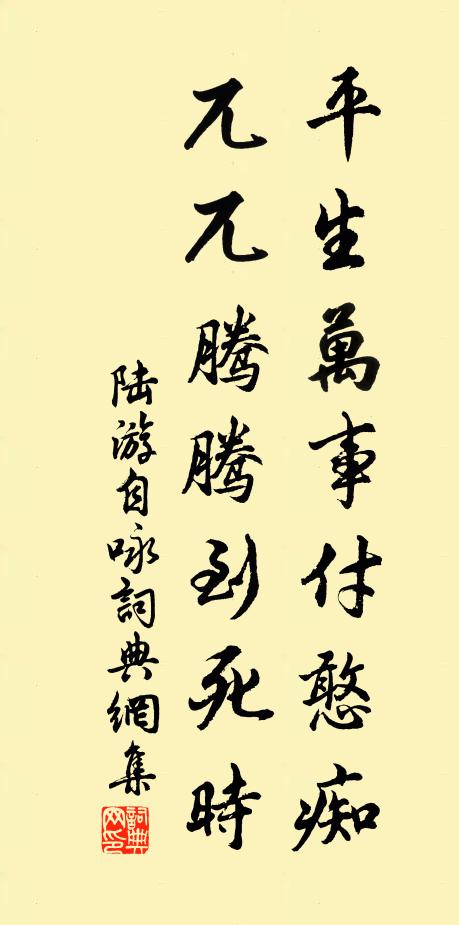 平生萬事付憨痴
兀兀騰騰到死時
陆游自咏詞典網集
詞典网印